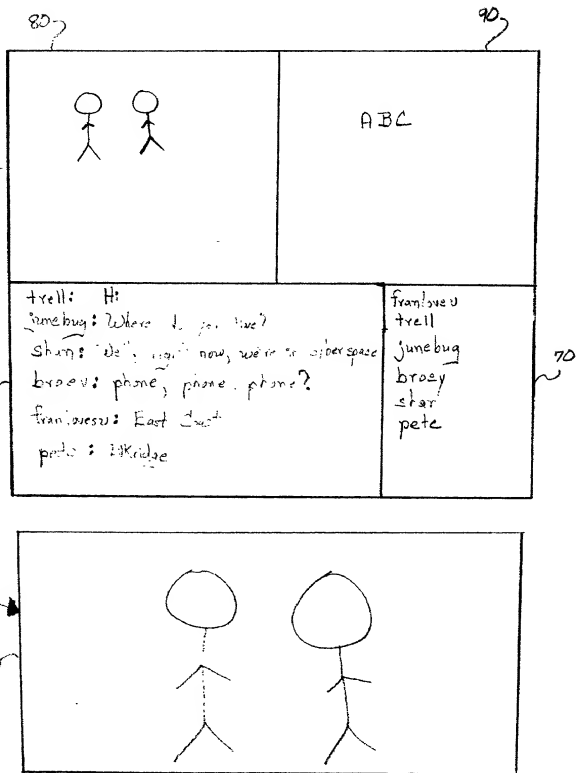 80
90
ABC
trell: Hi
junebug: Where do you live?
shan: Well, right now, we're in cyberspace
broev: phone, phone, phone?
franlovesu: East Coast
pete:
franlovesu
trell
junebug
broey
shar
pete
70